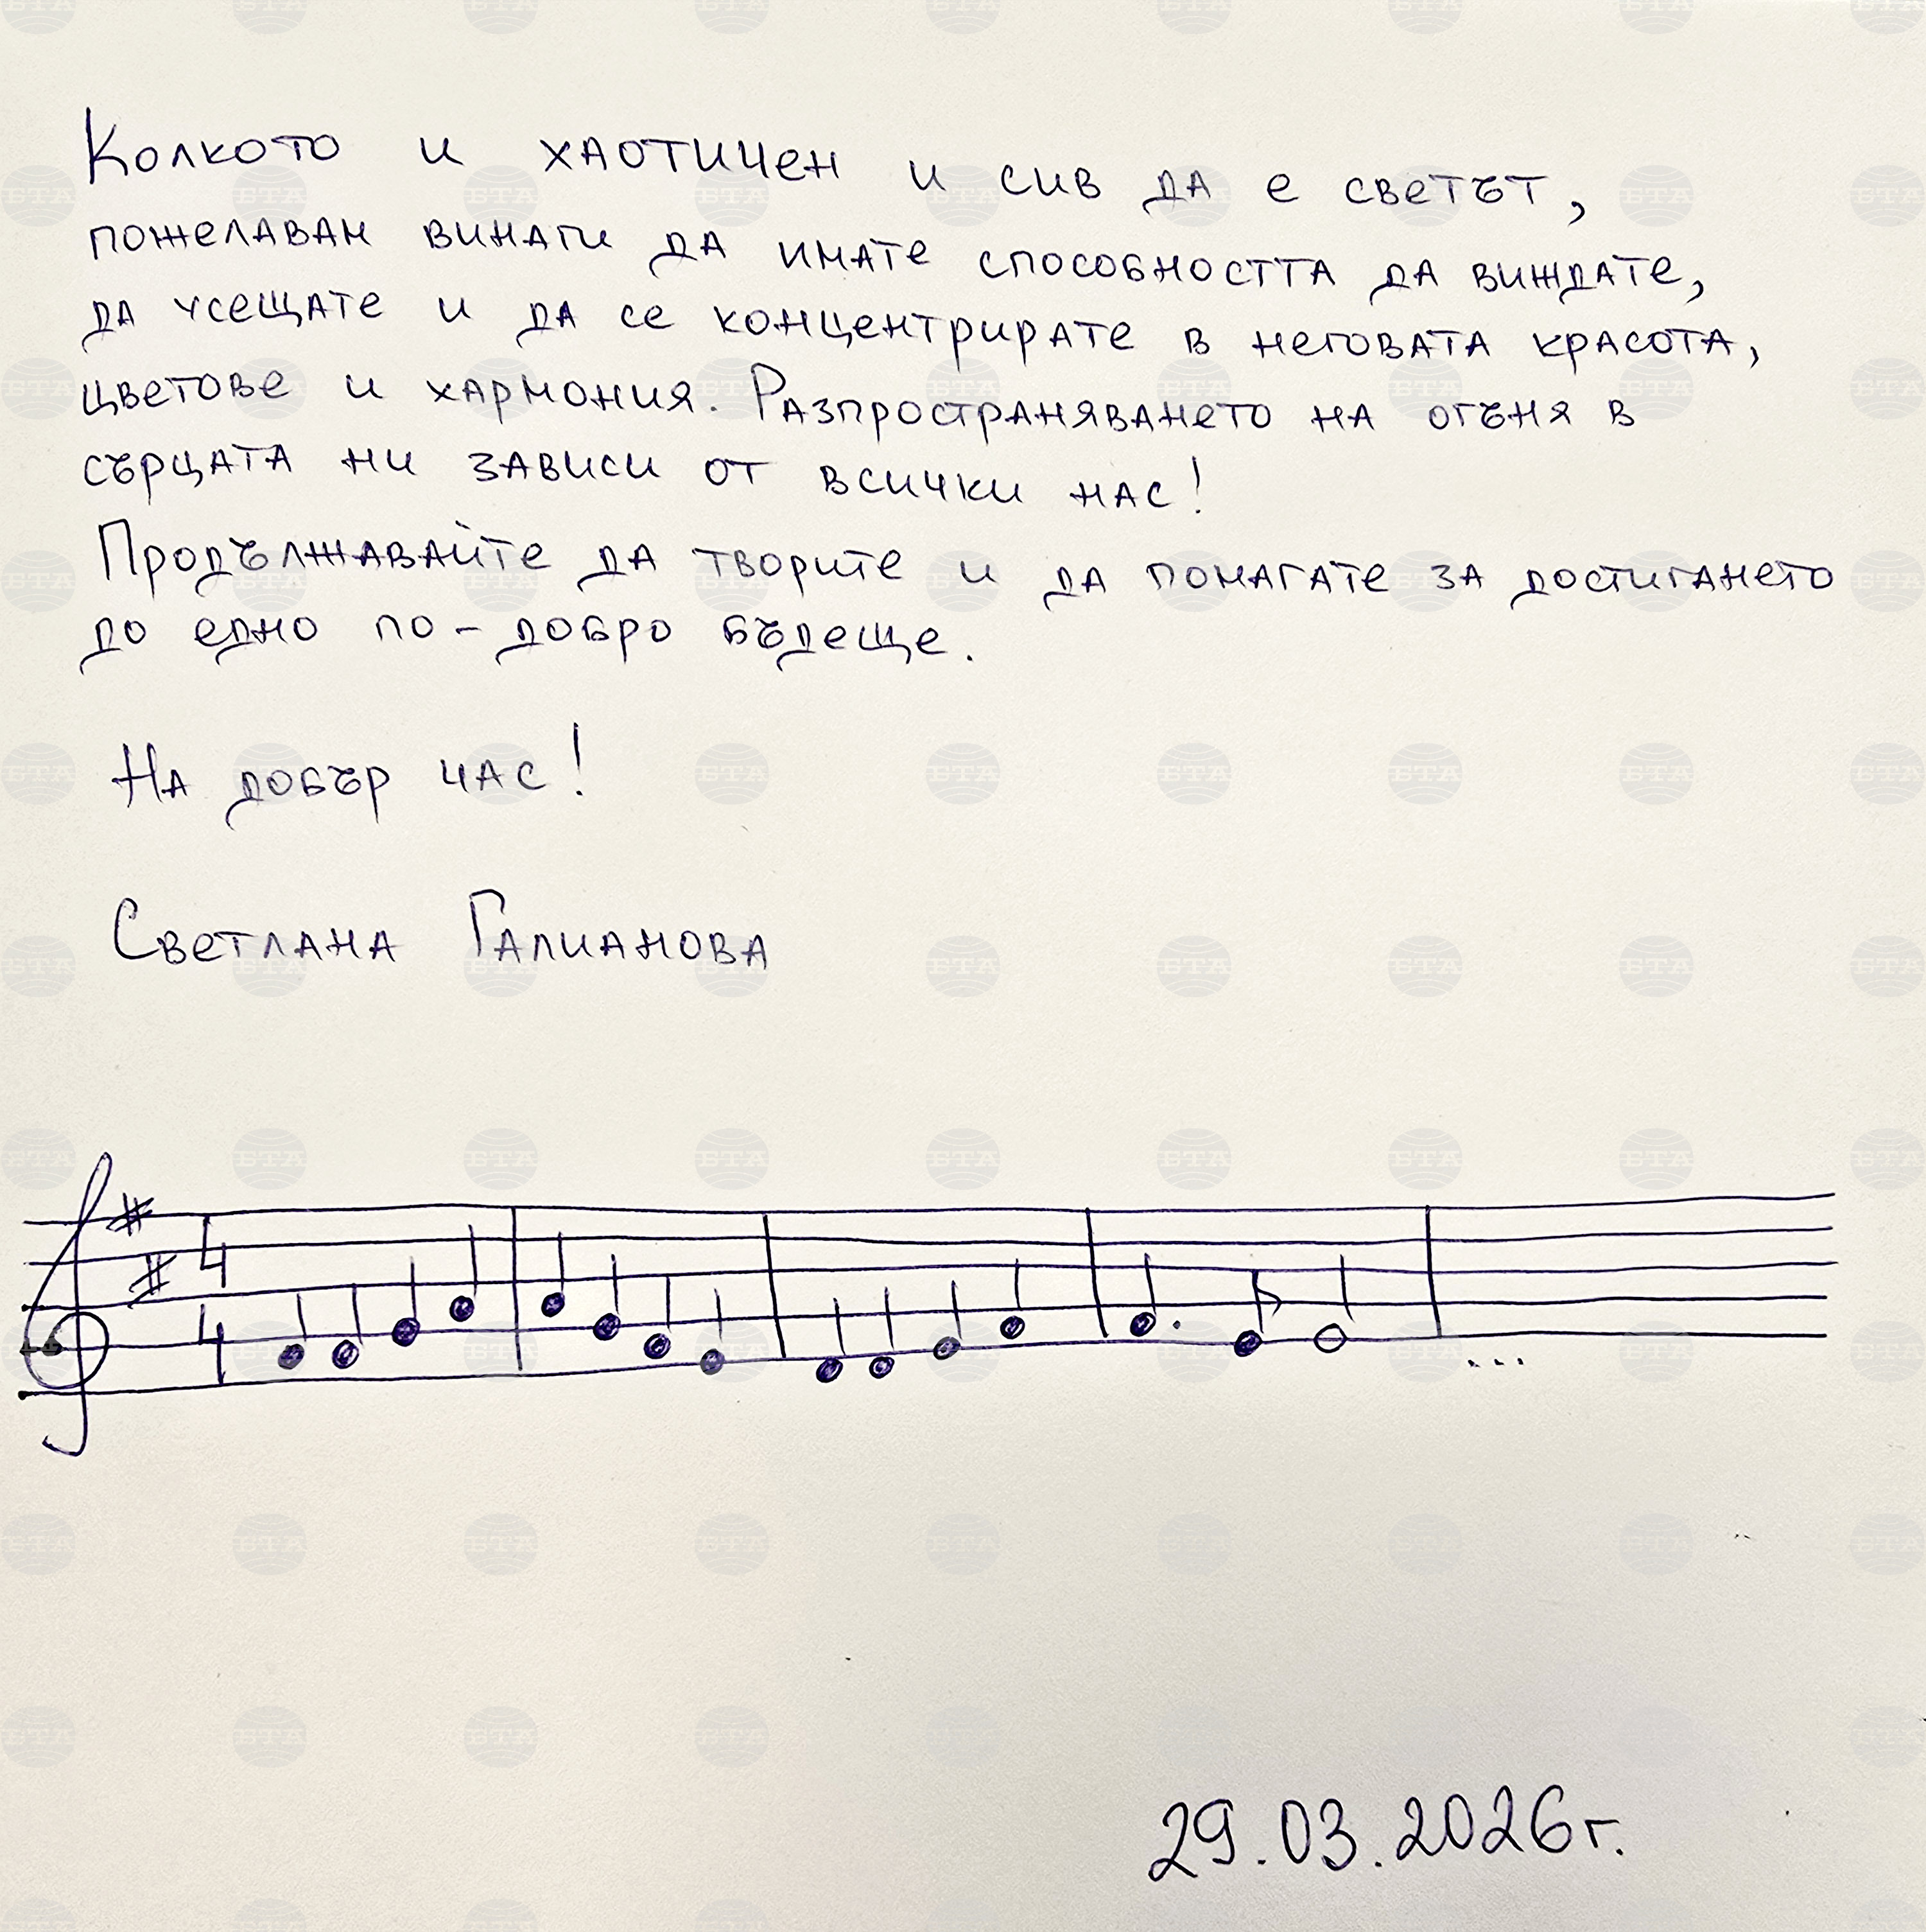 Колкото и хаотичен и сив да е светът,
пожелавам винаги да имате способността да виждате,
да усещате и да се концентрирате в неговата красота,
цветове и хармония. Разпространяването на огъня в
сърцата ни зависи от всички нас!
Продължавайте да творите и да помагате за достигането
до едно по-добро бъдеще.
На добър час!
Светлана Галианова
4
4
...
29.03.2026г.